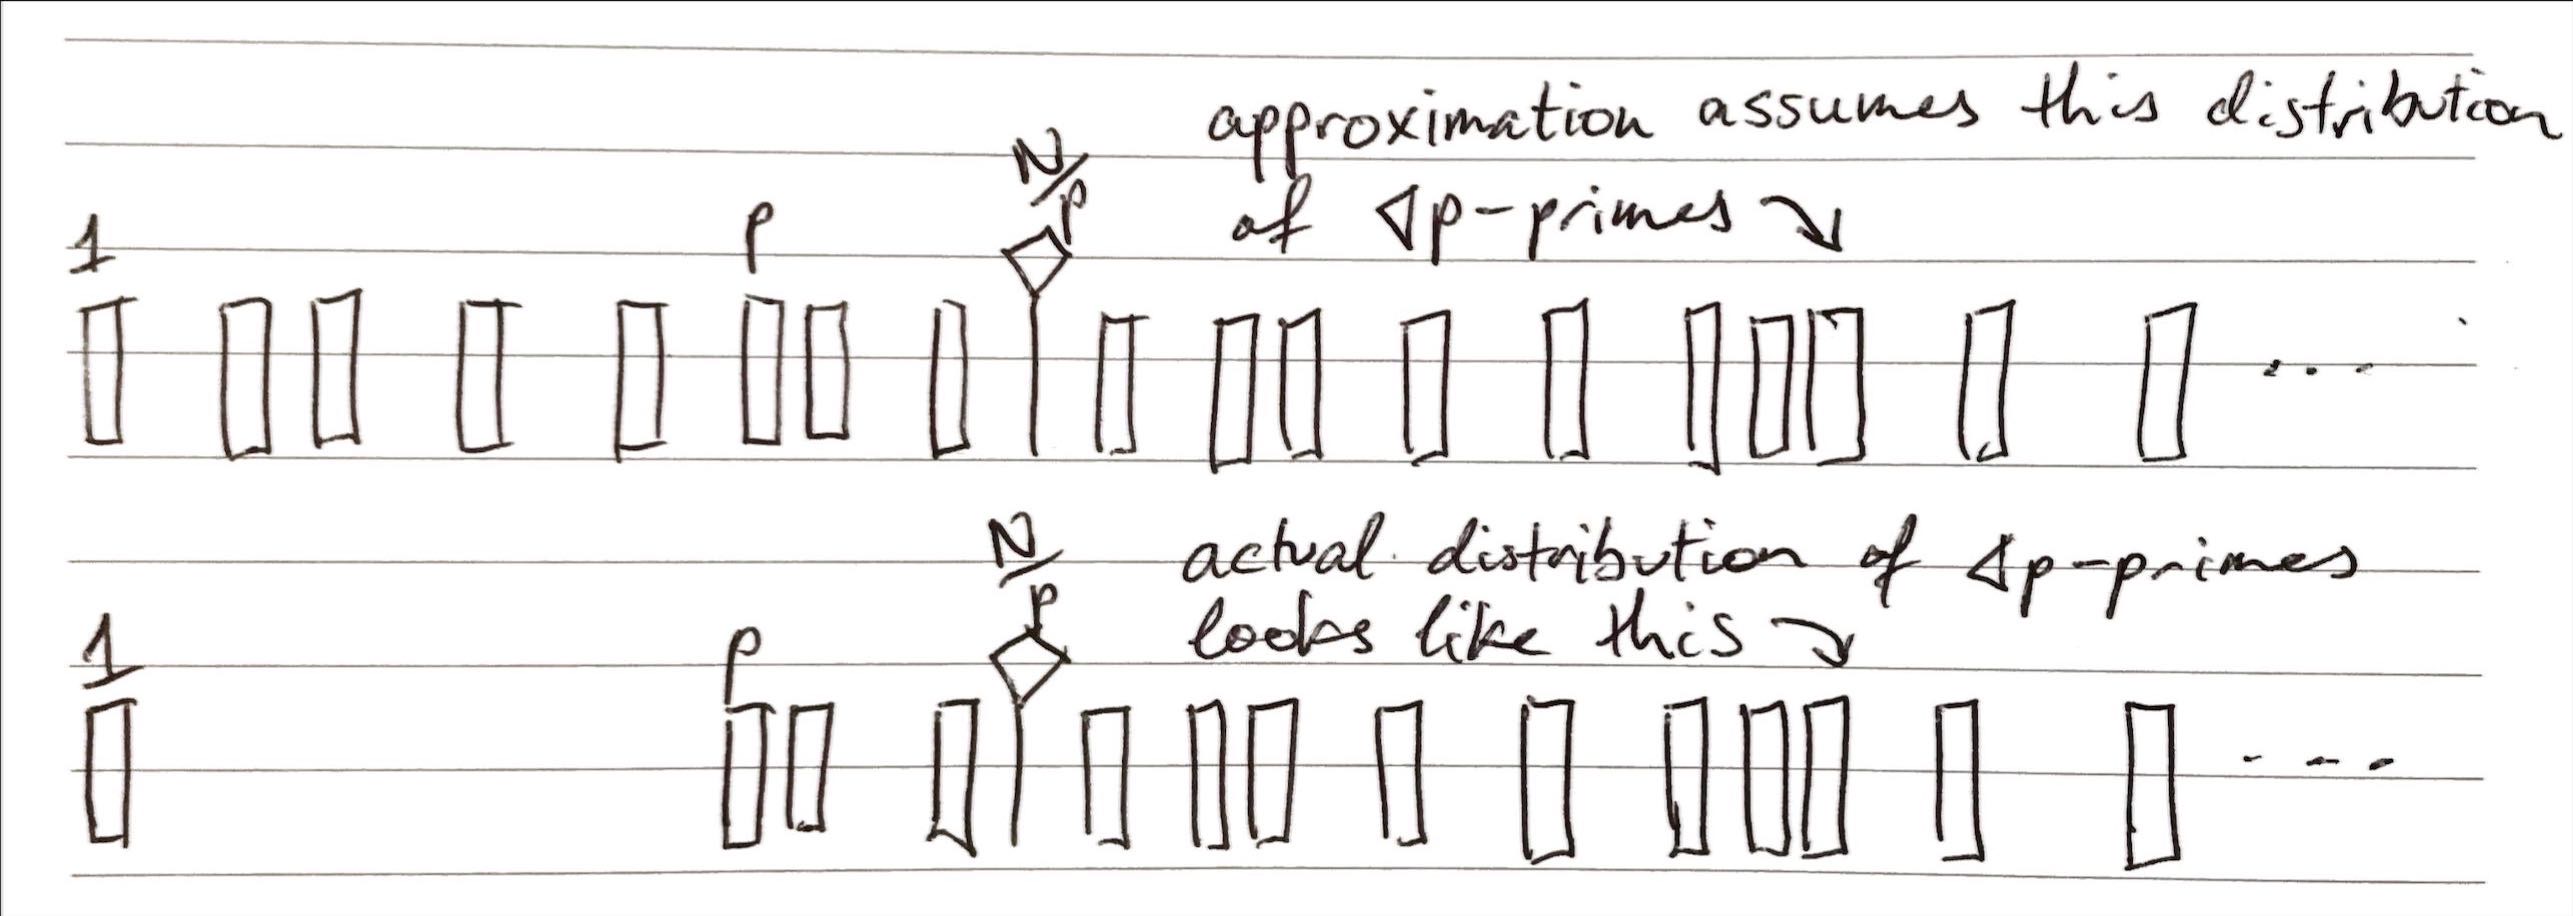 approximation assumes this distribution
N/p
of ⊲p-primes ↘
1
p
...
N/p
actual distribution of ⊲p-primes
looks like this ↘
1
p
...